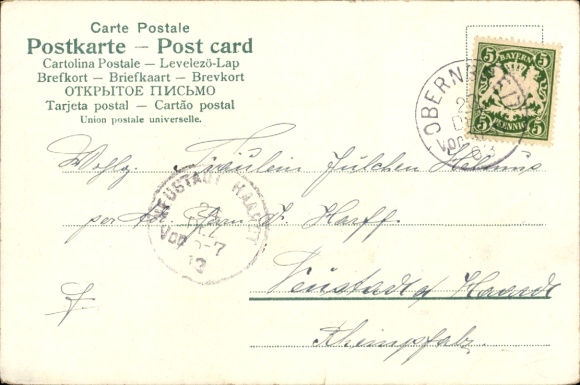 Carte Postale
Postkarte – Post card
Cartolina Postale – Levelezö-Lap
Brefkort – Briefkaart – Brevkort
ОТКРЫТОЕ ПИСЬМО
Tarjeta postal – Cartão postal
Union postale universelle.
BAYERN
5 5
5 PFENNIG 5
OBERNB
VOR
NEUSTADT HAARDT
VOR 6-7
Wohlg. Fräulein Julchen
per Adr. Harff.
Neustadt a/ Haardt
Rheinpfalz.